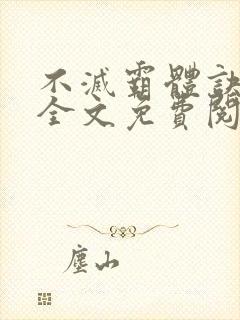 不滅霸體訣
全文免費閱
塵山